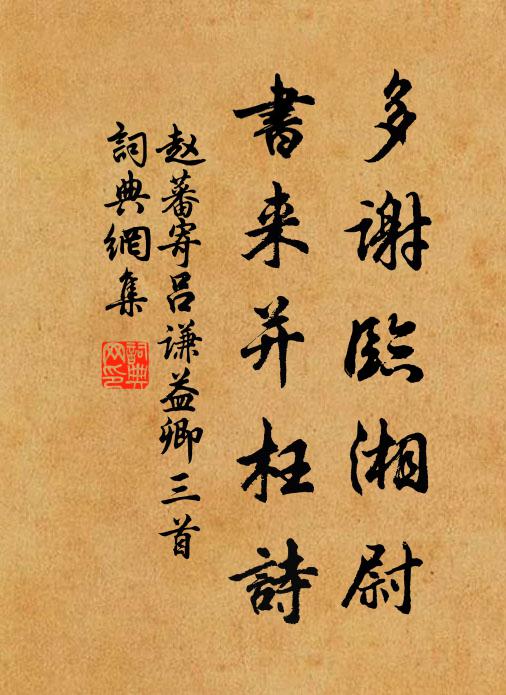 多谢臨湘尉
書来并枉詩
赵蕃寄吕谦益卿三首
詞典網集
詞典网印